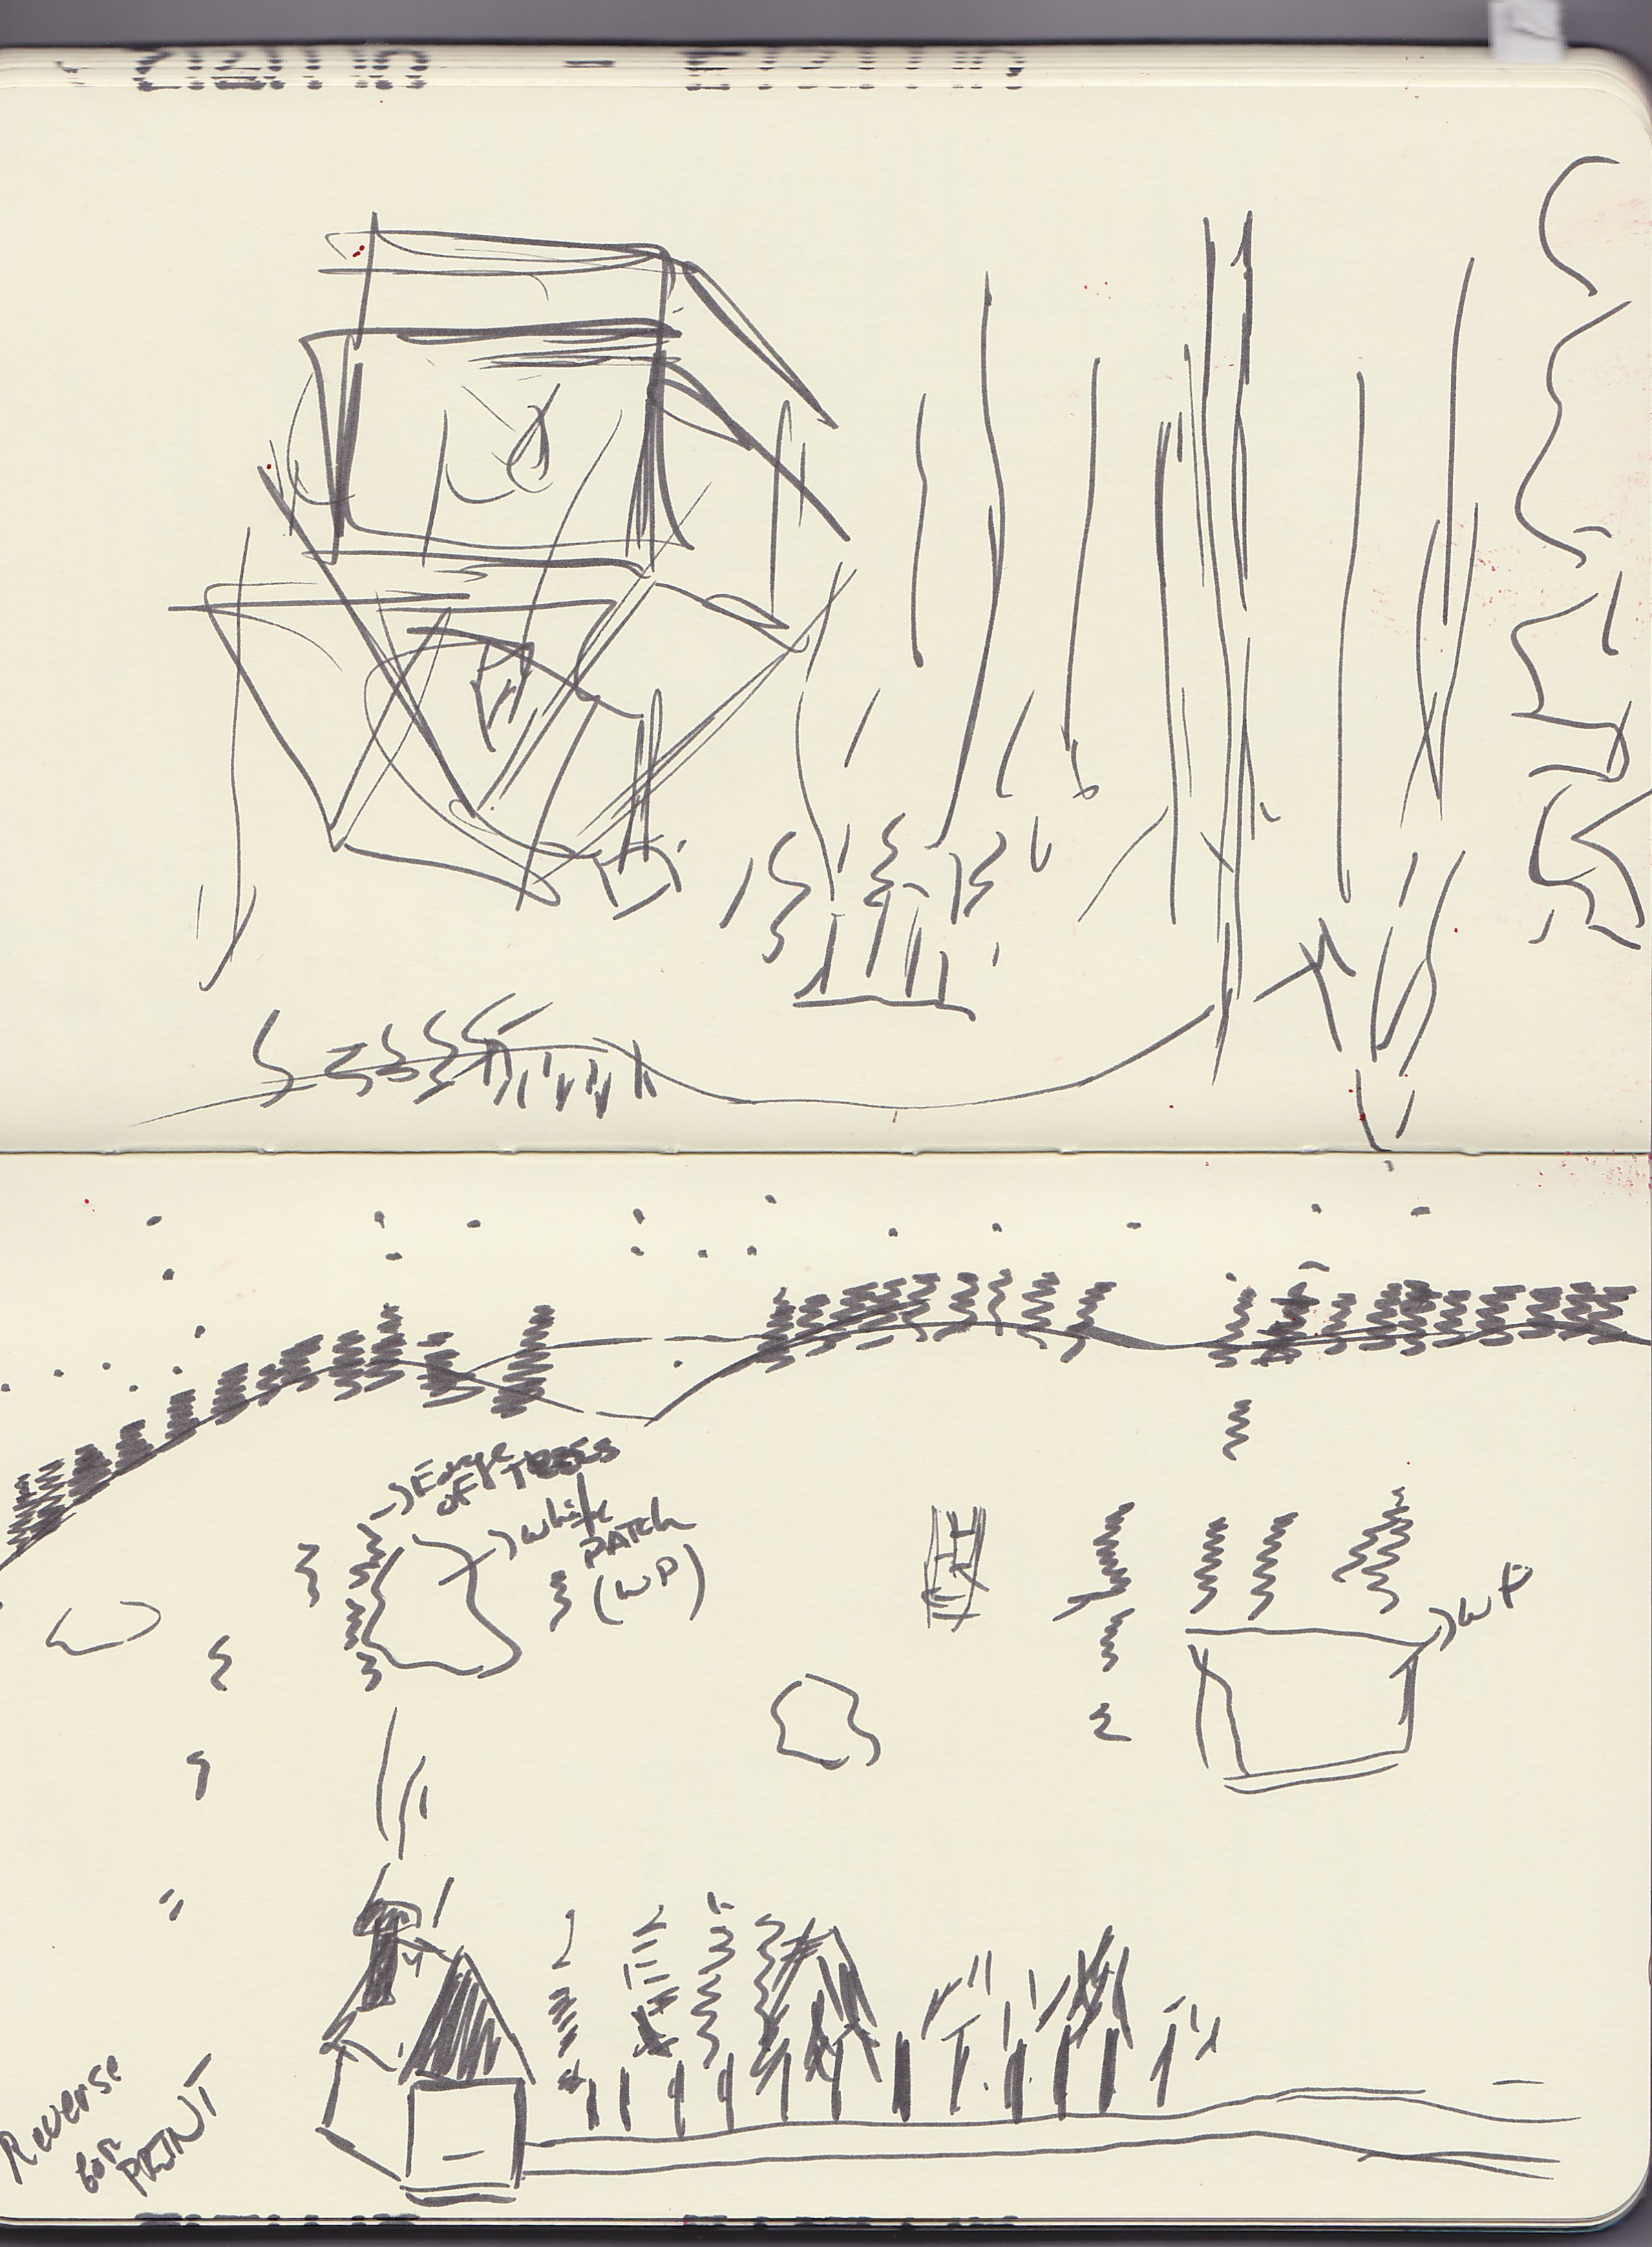 OF TREES
White
PATCH
(WP)
WP
Reverse
for
PRINT